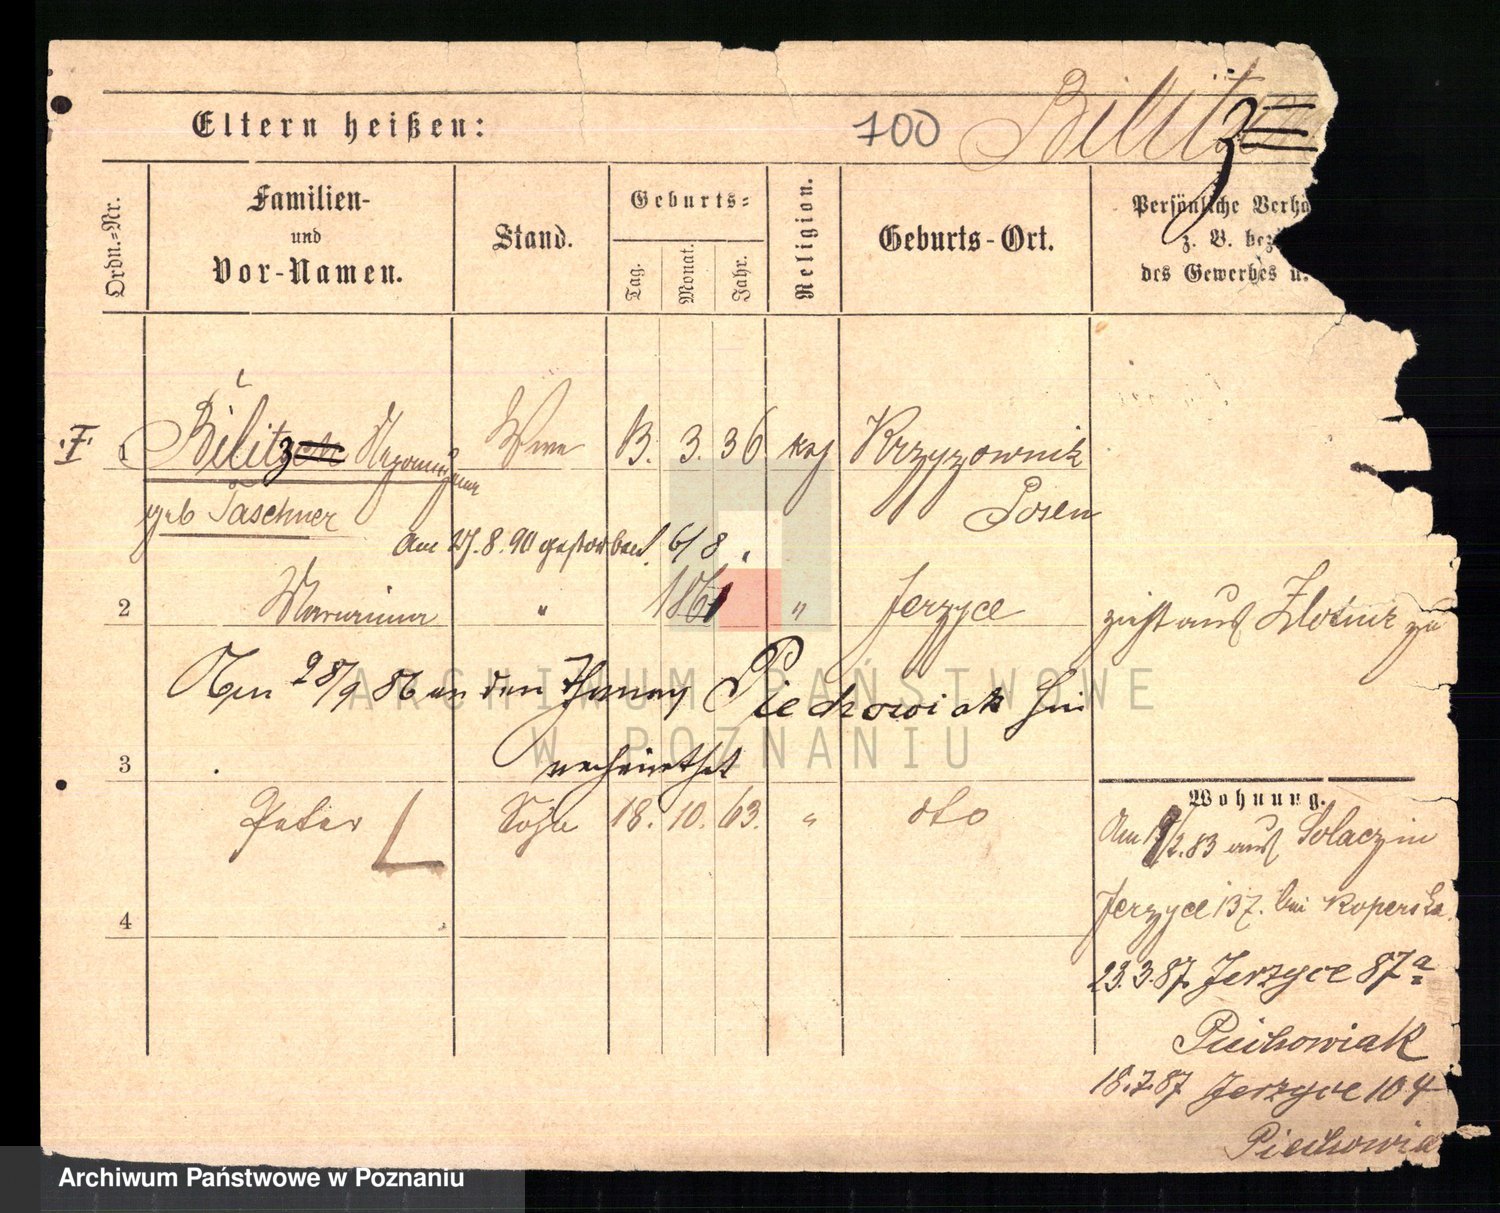 Eltern heißen:
700
Bilitz
Ordn.-Nr.
Familien-
und
Vor-Namen.
Stand.
Geburts-
Tag.
Monat.
Jahr.
Religion.
Geburts-Ort.
Persönliche Verhä
z. B. bez
des Gewerbes u.
I
1
Bilitz
Wwe
3. 36
Krzyzownik
geb Taschner
Posen
am 27.8.90 gestorben
6/8
2
Marianna
"
1861
"
Jerzyce
zieht aus Zlotnik zu
28/9 86 an den
Piechowiak
verheirathet
3
Peter
Sohn
18. 10. 63.
"
dto
Wohnung.
Am
2.83 aus Solacz in
4
Jerzyce 137. bei Koperska
23.3.87. Jerzyce 87a
Piechowiak
18.7.87 Jerzyce 104
Piechowia
ARCHIWUM PAŃSTWOWE
W POZNANIU
Archiwum Państwowe w Poznaniu